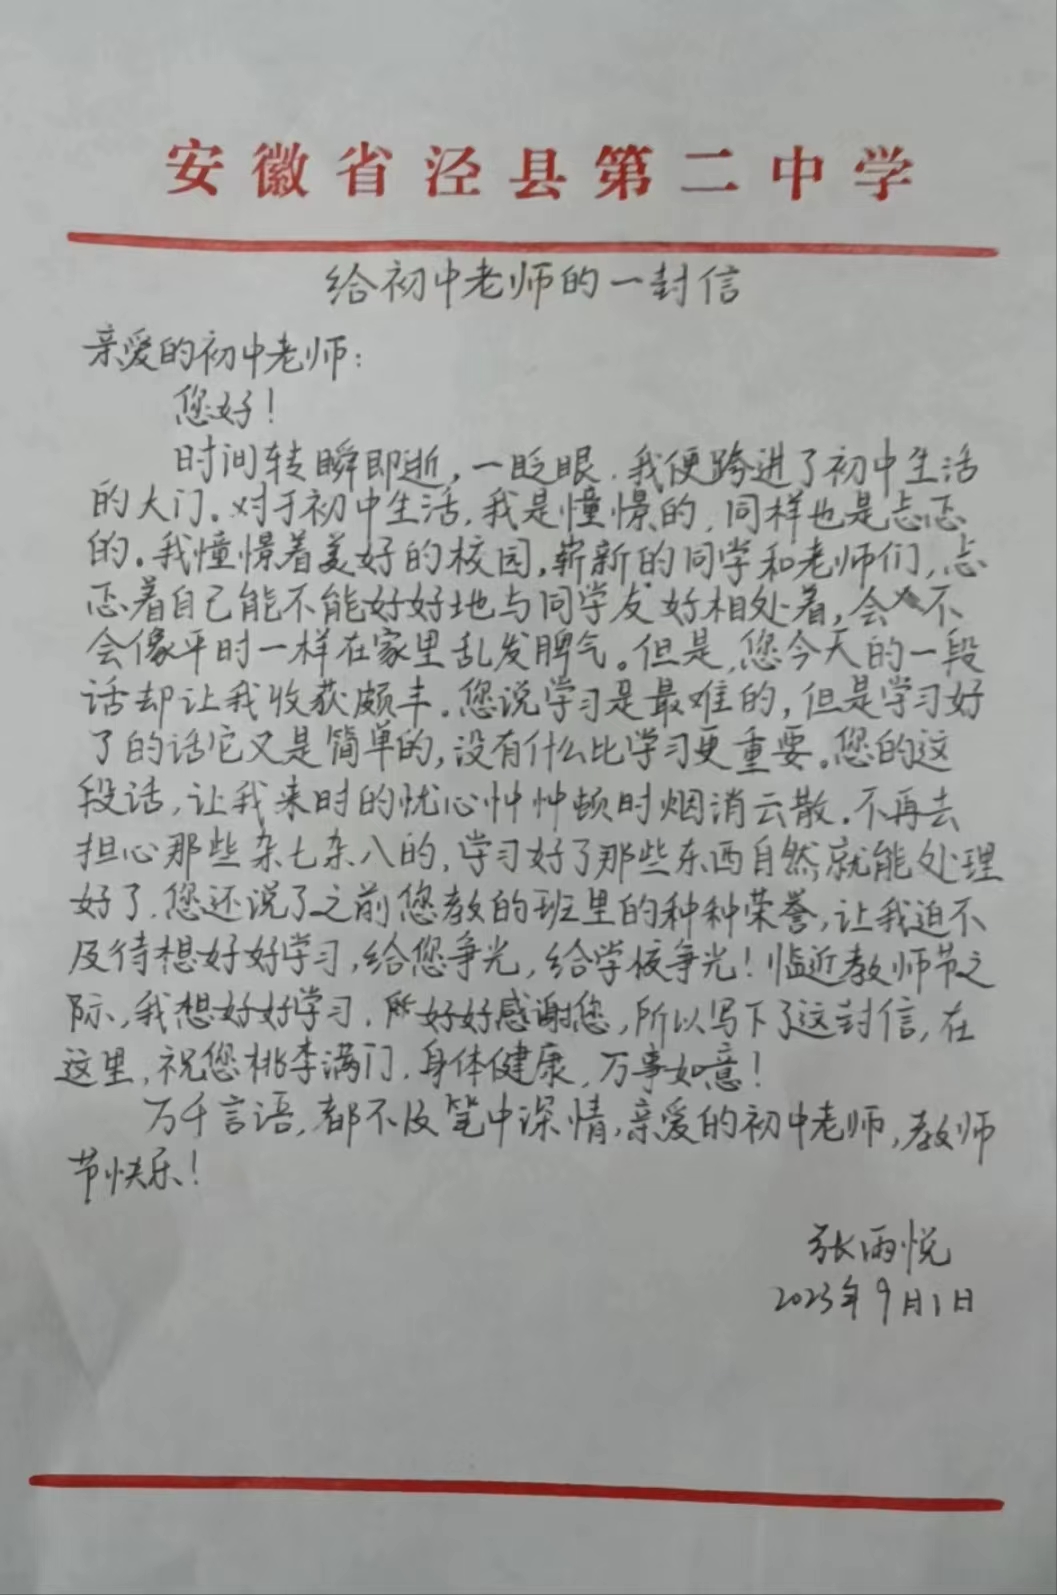 安徽省泾县第二中学
给初中老师的一封信
亲爱的初中老师:
您好!
时间转瞬即逝,一眨眼,我便跨进了初中生活
的大门。对于初中生活,我是憧憬的,同样也是忐忑
的。我憧憬着美好的校园,崭新的同学和老师们,忐
忑着自己能不能好好地与同学友好相处着,会不
会像平时一样在家里乱发脾气。但是,您今天的一段
话却让我收获颇丰。您说学习是最难的,但是学习好
了的话它又是简单的,没有什么比学习更重要。您的这
段话,让我来时的忧心忡忡顿时烟消云散。不再去
担心那些杂七杂八的,学习好了那些东西自然就能处理
好了。您还说了之前您教的班里的种种荣誉,让我迫不
及待想好好学习,给您争光,给学校争光!临近教师节之
际,我想好好学习,好好感谢您,所以写下了这封信,在
这里,祝您桃李满门,身体健康,万事如意!
万千言语,都不及笔中深情,亲爱的初中老师,教师
节快乐!
张雨悦
2023年9月1日